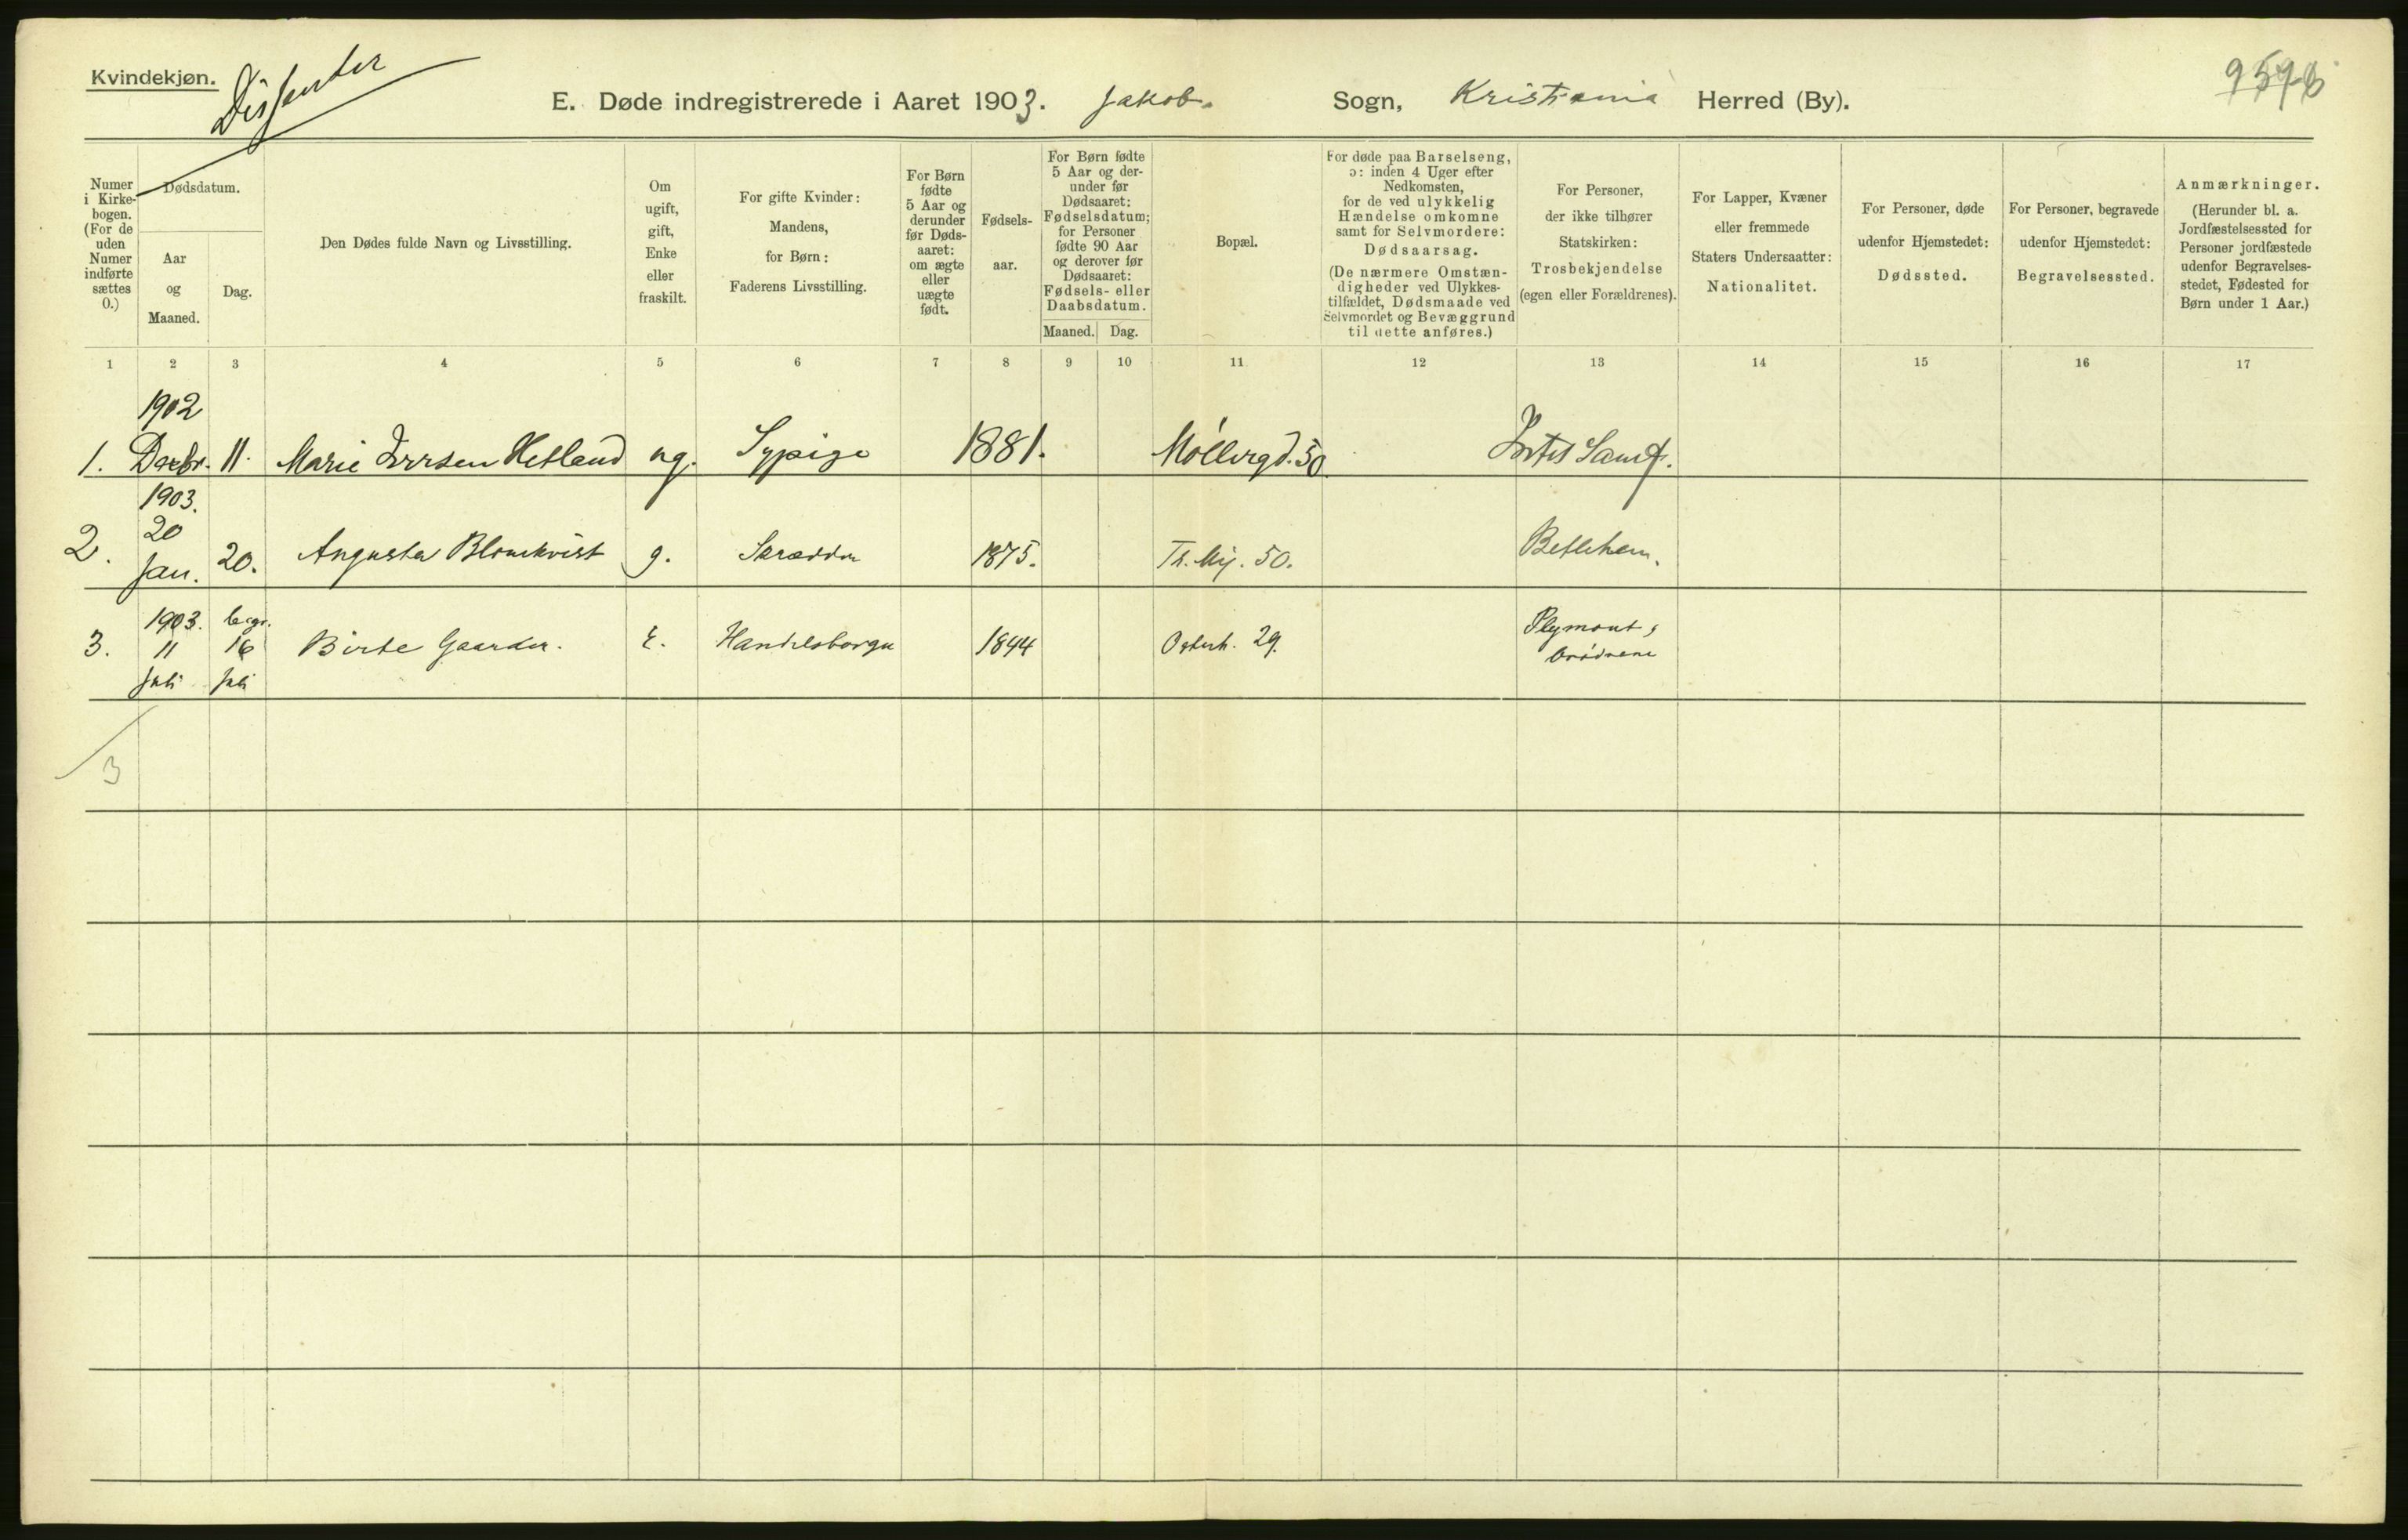 Kvindekjøn.
Dissenter
E. Døde indregistrerede i Aaret 1903. Jakobs Sogn, Kristiania Herred (By).
Numer i Kirke-bogen. (For de uden Numer indførte sættes 0.)
Dødsdatum.
Aar og Maaned.
Dag.
Den Dødes fulde Navn og Livsstilling.
Om ugift, gift, Enke eller fraskilt.
For gifte Kvinder: Mandens, for Børn: Faderens Livsstilling.
For Børn fødte 5 Aar og derunder før Døds-aaret: om ægte eller uægte født.
Fødsels-aar.
For Børn fødte 5 Aar og der-under før Dødsaaret: Fødselsdatum; for Personer fødte 90 Aar og derover før Dødsaaret: Fødsels- eller Daabsdatum.
Maaned. Dag.
Bopæl.
For døde paa Barselseng, ɔ: inden 4 Uger efter Nedkomsten, for de ved ulykkelig Hændelse omkomne samt for Selvmordere: Dødsaarsag. (De nærmere Omstæn-digheder ved Ulykkes-tilfældet, Dødsmaade ved Selvmordet og Bevæggrund til dette anføres.)
For Personer, der ikke tilhører Statskirken: Trosbekjendelse (egen eller Forældrenes).
For Lapper, Kvæner eller fremmede Staters Undersaatter: Nationalitet.
For Personer, døde udenfor Hjemstedet: Dødssted.
For Personer, begravede udenfor Hjemstedet: Begravelsessted.
Anmærkninger. (Herunder bl. a. Jordfæstelsessted for Personer jordfæstede udenfor Begravelses-stedet, Fødested for Børn under 1 Aar.)
1 2 3 4 5 6 7 8 9 10 11 12 13 14 15 16 17
1902
1. Decbr. 11. Marie Hetland ug. Sypige 1881. Møllergd. 50
1903.
2. 20 Jan. 20. Augusta Blomkvist g. Skrædder 1875. Th. My. 50. Betlehem.
1903. begr.
3. 11 Juli 16 Juli Birte Gaarder. E. Handelsborger 1844 Osterh. 29. Plymouth brødrene
3